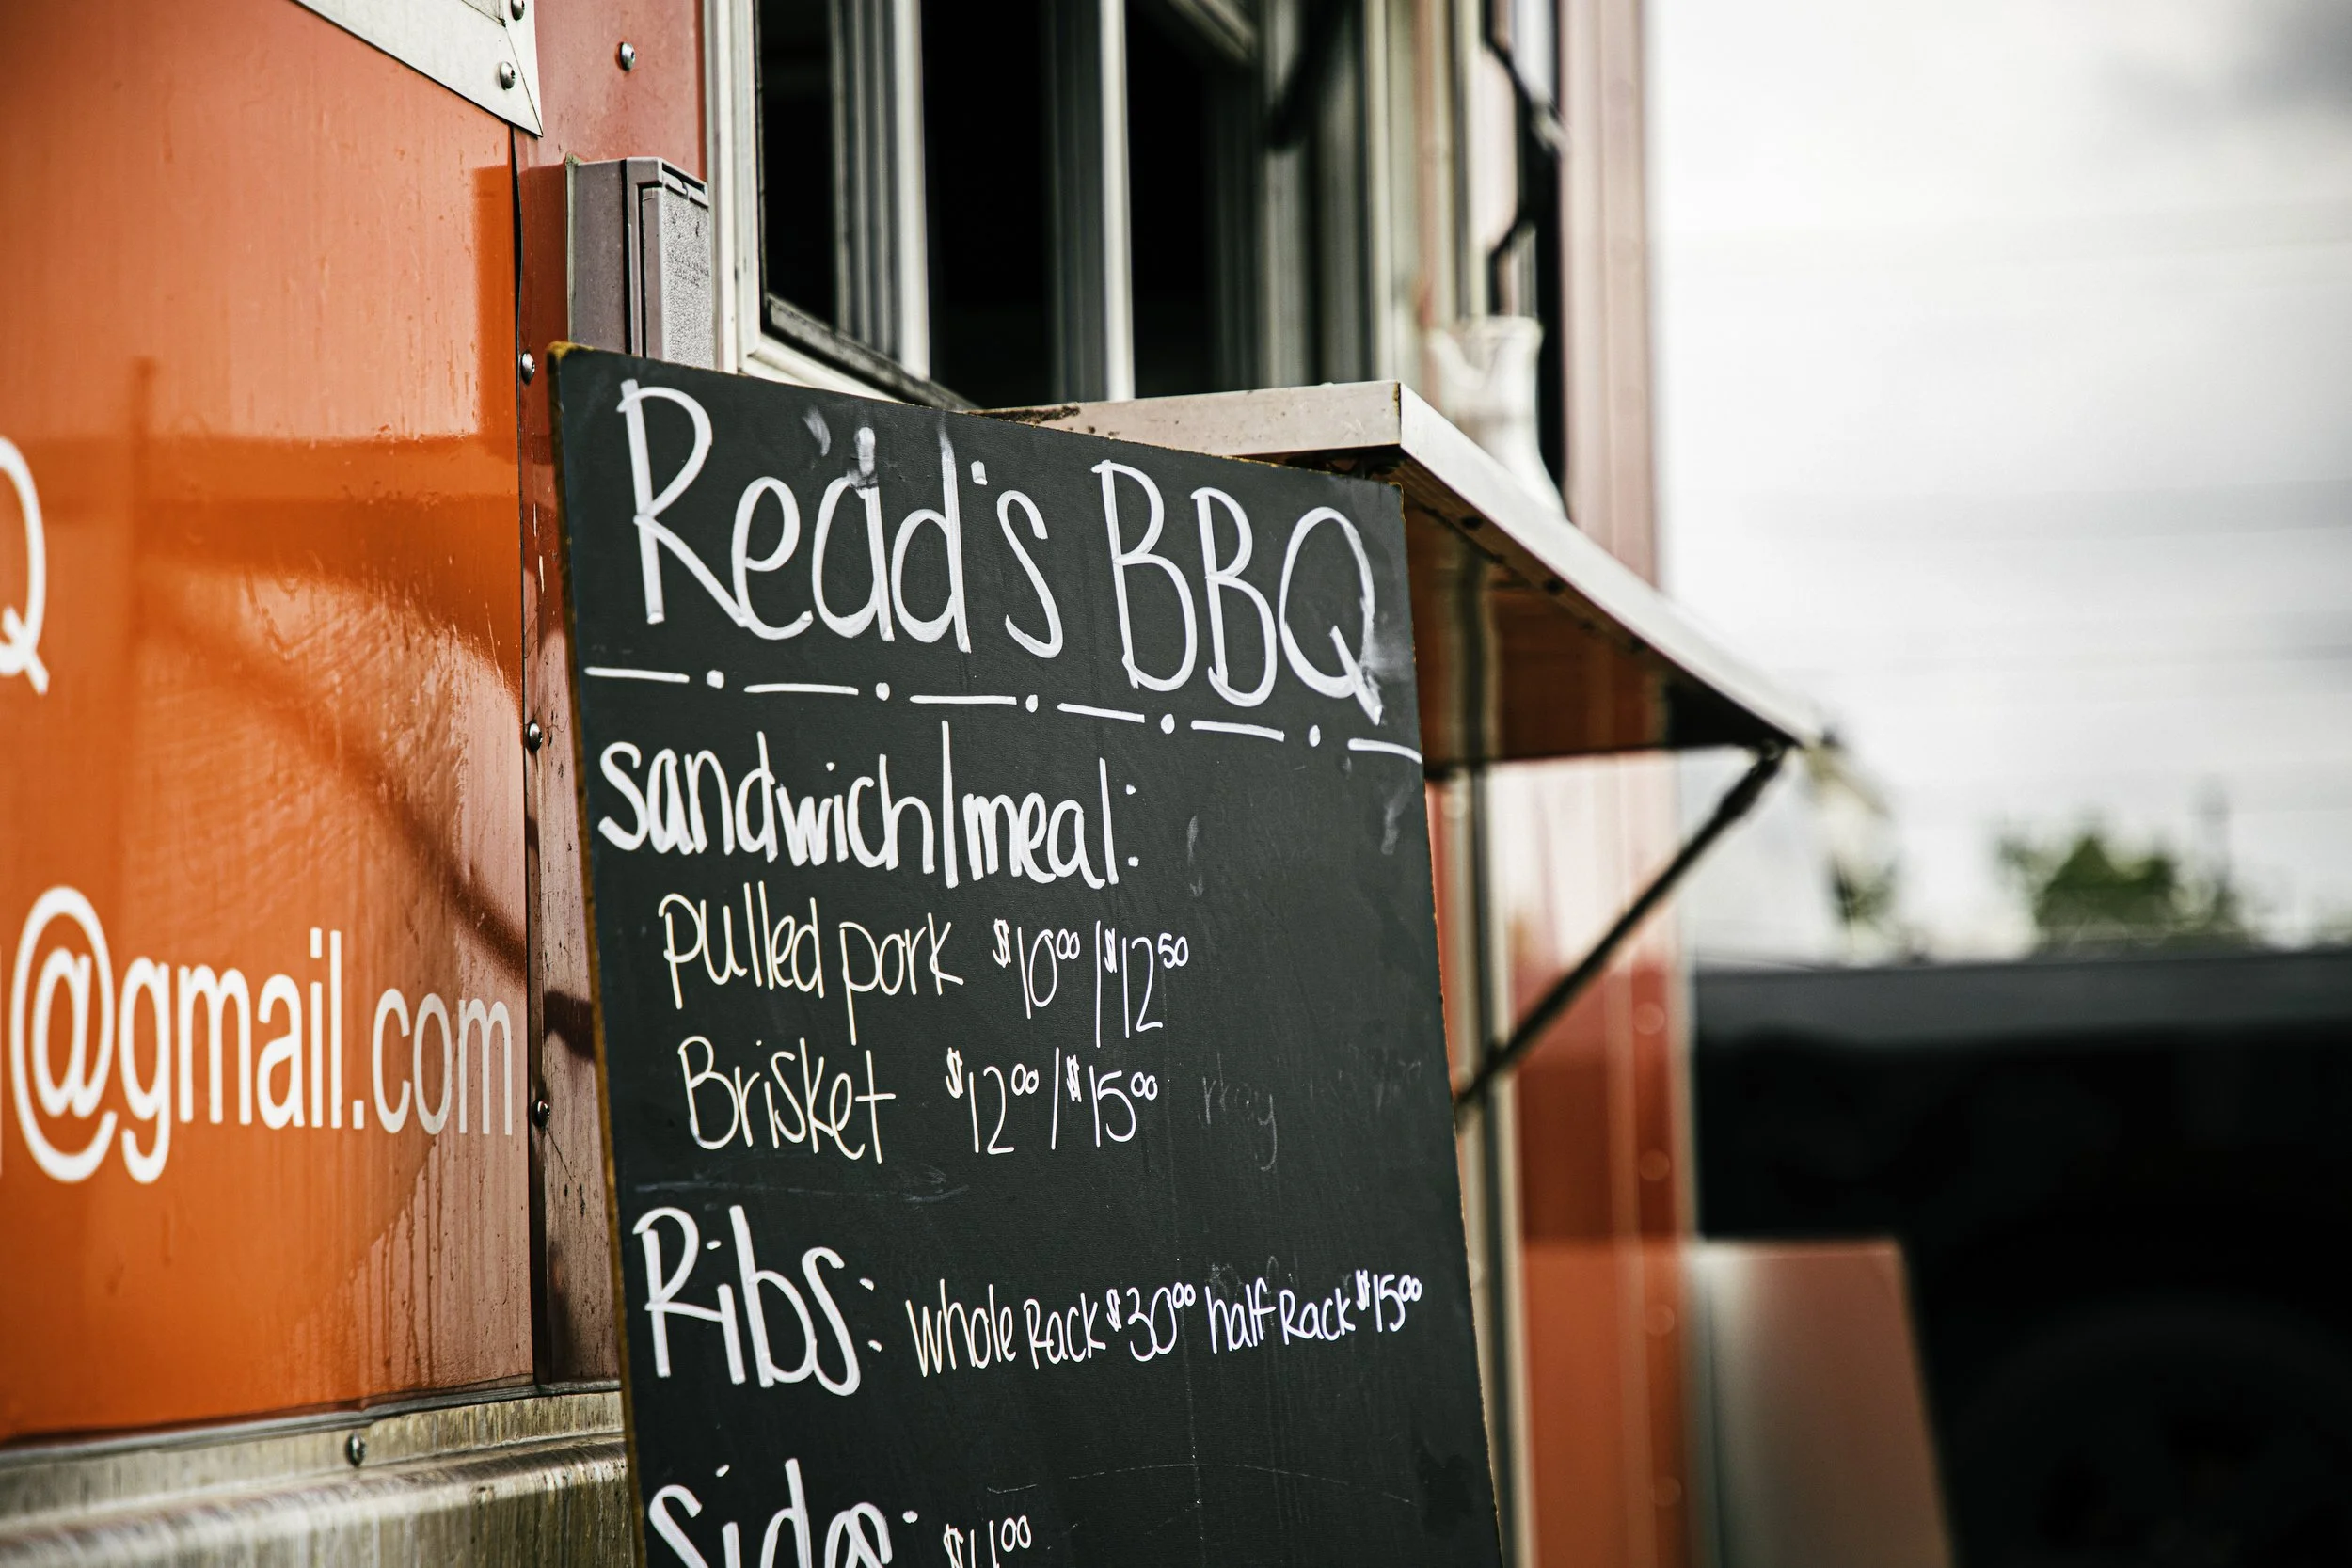 Q
@gmail.com
Read's BBQ
sandwich/meal:
Pulled pork $10⁰⁰/$12⁵⁰
Brisket $12⁰⁰/$15⁰⁰
Ribs: whole Rack $30⁰⁰ half Rack $15⁰⁰
Sides: